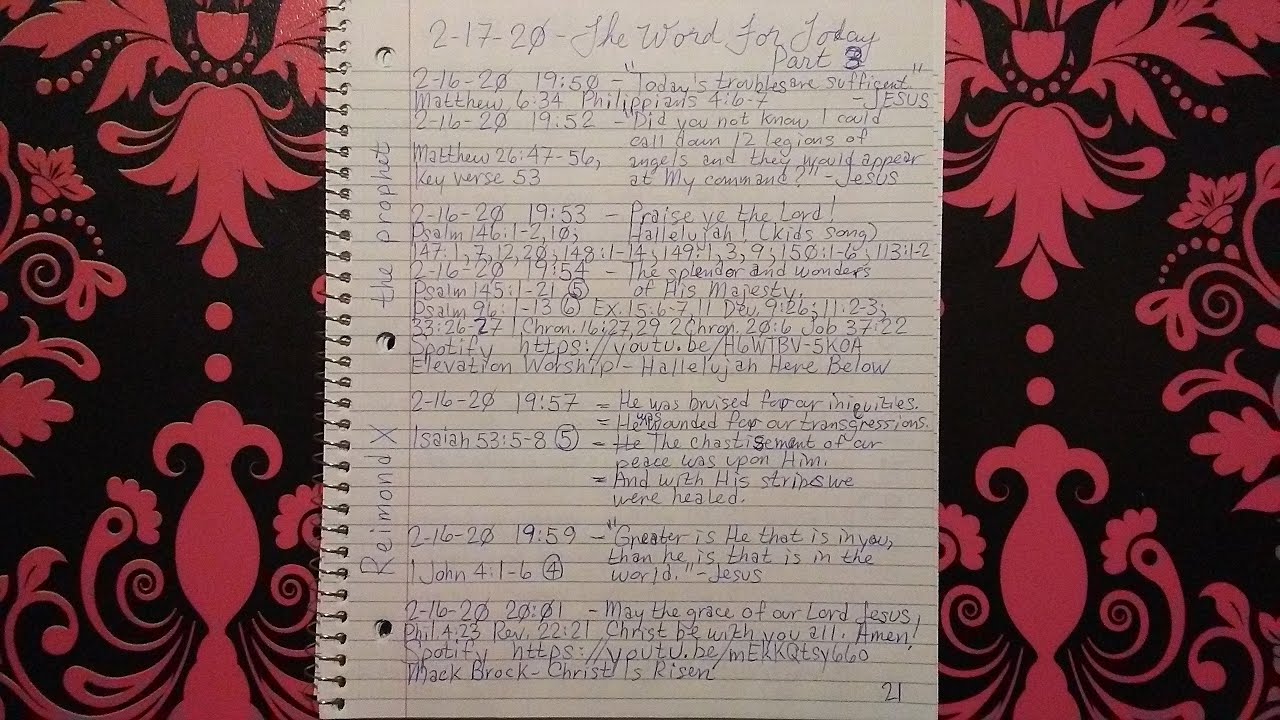 2-17-20 - The Word For Today
Part 3
2-16-20 19:50 - "Today's troubles are sufficent."
Matthew 6:34 Philippians 4:6-7 - JESUS
2-16-20 19:52 - "Did you not know I could
call down 12 legions of
Matthew 26:47-56, angels and they would appear
Key verse 53 at My command?" - Jesus
2-16-20 19:53 - Praise ye the Lord!
Psalm 146:1-2, 10; Hallelujah! (kids song)
147:1, 7, 12, 20; 148:1-14; 149:1, 3, 9; 150:1-6; 113:1-2
2-16-20 19:54 - The splendor and wonders
Psalm 145:1-21 (5) of His Majesty.
Psalm 96:1-13 (6) Ex. 15:6-7, 11 Dev. 9:26; 11:2-3;
33:26-27 1 Chron. 16:27, 29 2 Chron. 20:6 Job 37:22
Spotify https://youtu.be/H6WTBV-5K0A
Elevation Worship - Hallelujah Here Below
2-16-20 19:57 = He was bruised for our iniquities.
= He was wounded for our transgressions.
Isaiah 53:5-8 (5) - The chastisement of our
peace was upon Him.
= And with His stripes we
were healed.
2-16-20 19:59 - "Greater is He that is in you,
than he is that is in the
1 John 4:1-6 (4) world." - Jesus
2-16-20 20:01 - May the grace of our Lord Jesus
Phil 4:23 Rev. 22:21 Christ be with you all. Amen!
Spotify https://youtu.be/mEKKQtsy66o
Mack Brock - Christ Is Risen
21
Reimond X the prophet